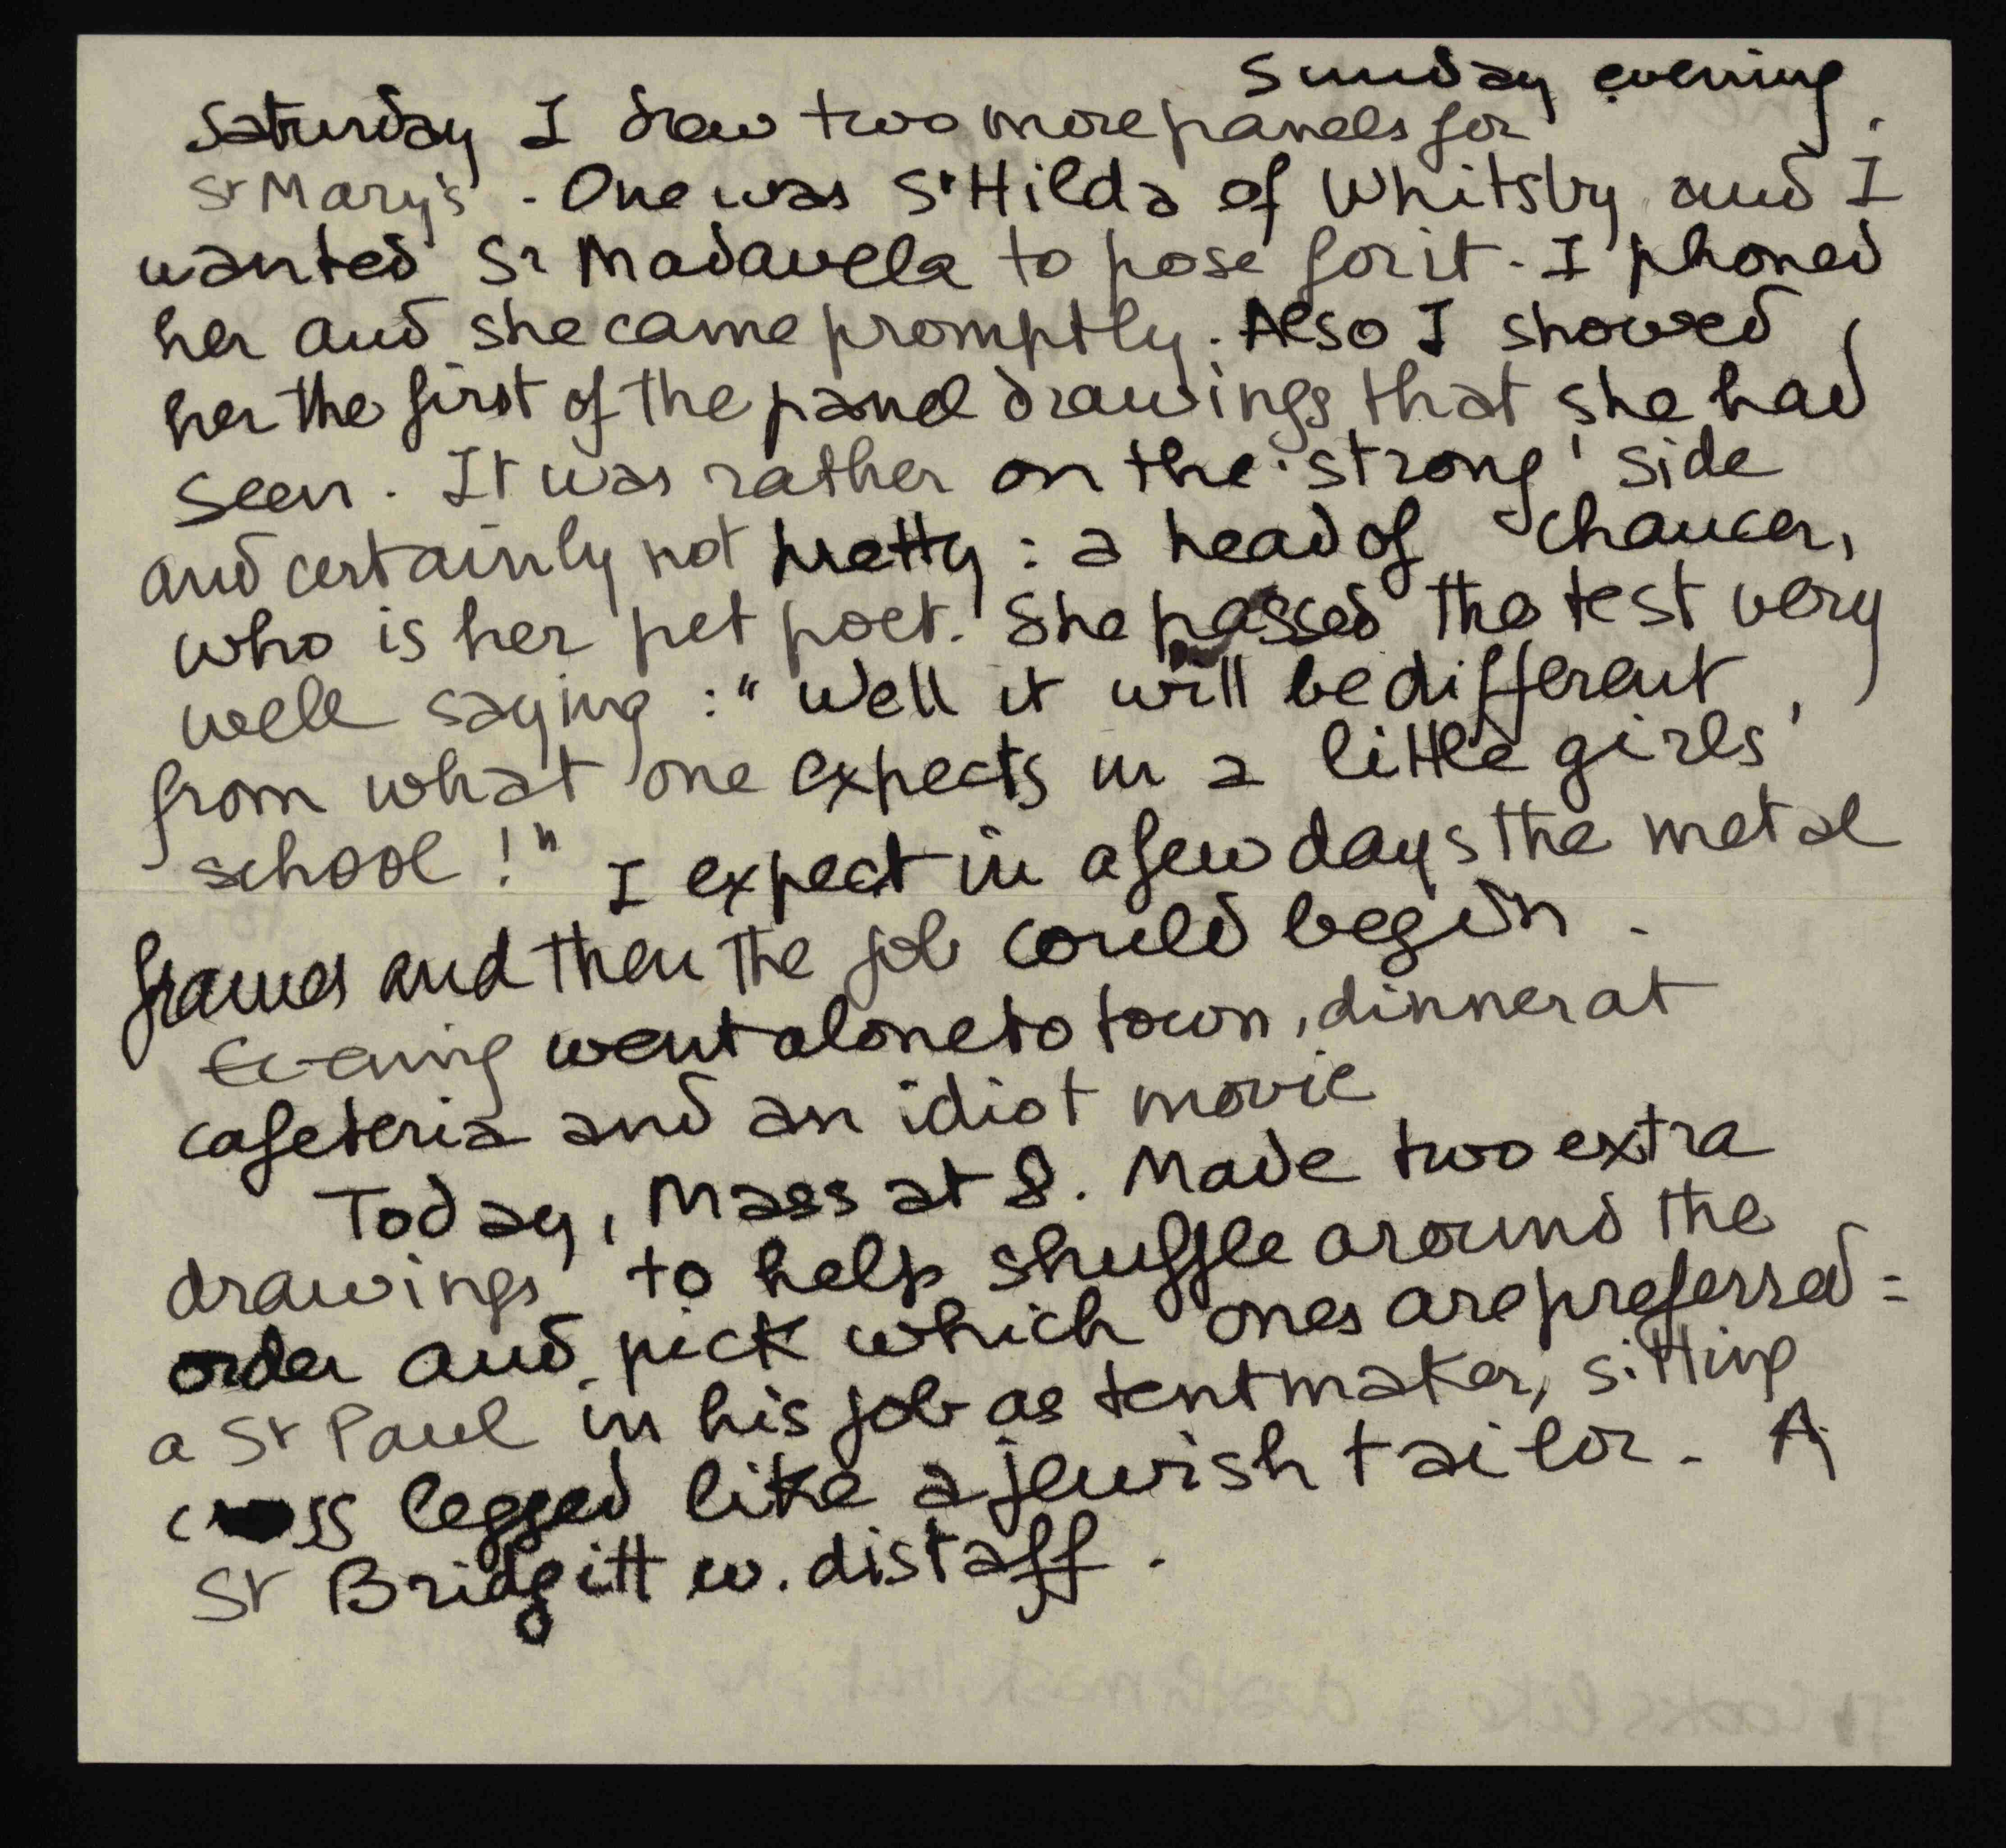 Sunday evening.
Saturday I drew two more panels for
St Mary's. One was St Hilda of Whitsby and I
wanted Sr Madavela to pose for it. I phoned
her and she came promptly. Also I showed
her the first of the panel drawings that she had
seen. It was rather on the 'strong' side
and certainly not pretty: a head of Chaucer,
who is her pet poet. She passed the test very
well saying: "Well it will be different,
from what one expects in a little girls'
school!" I expect in a few days the metal
frames and then the job could begin.
Evening went alone to town, dinner at
cafeteria and an idiot movie
Today, Mass at 8. Made two extra
drawings to help shuffle around the
order and pick which ones are preferred =
a St Paul in his job as tentmaker, sitting
cross legged like a jewish tailor. A
St Bridgitt w. distaff.